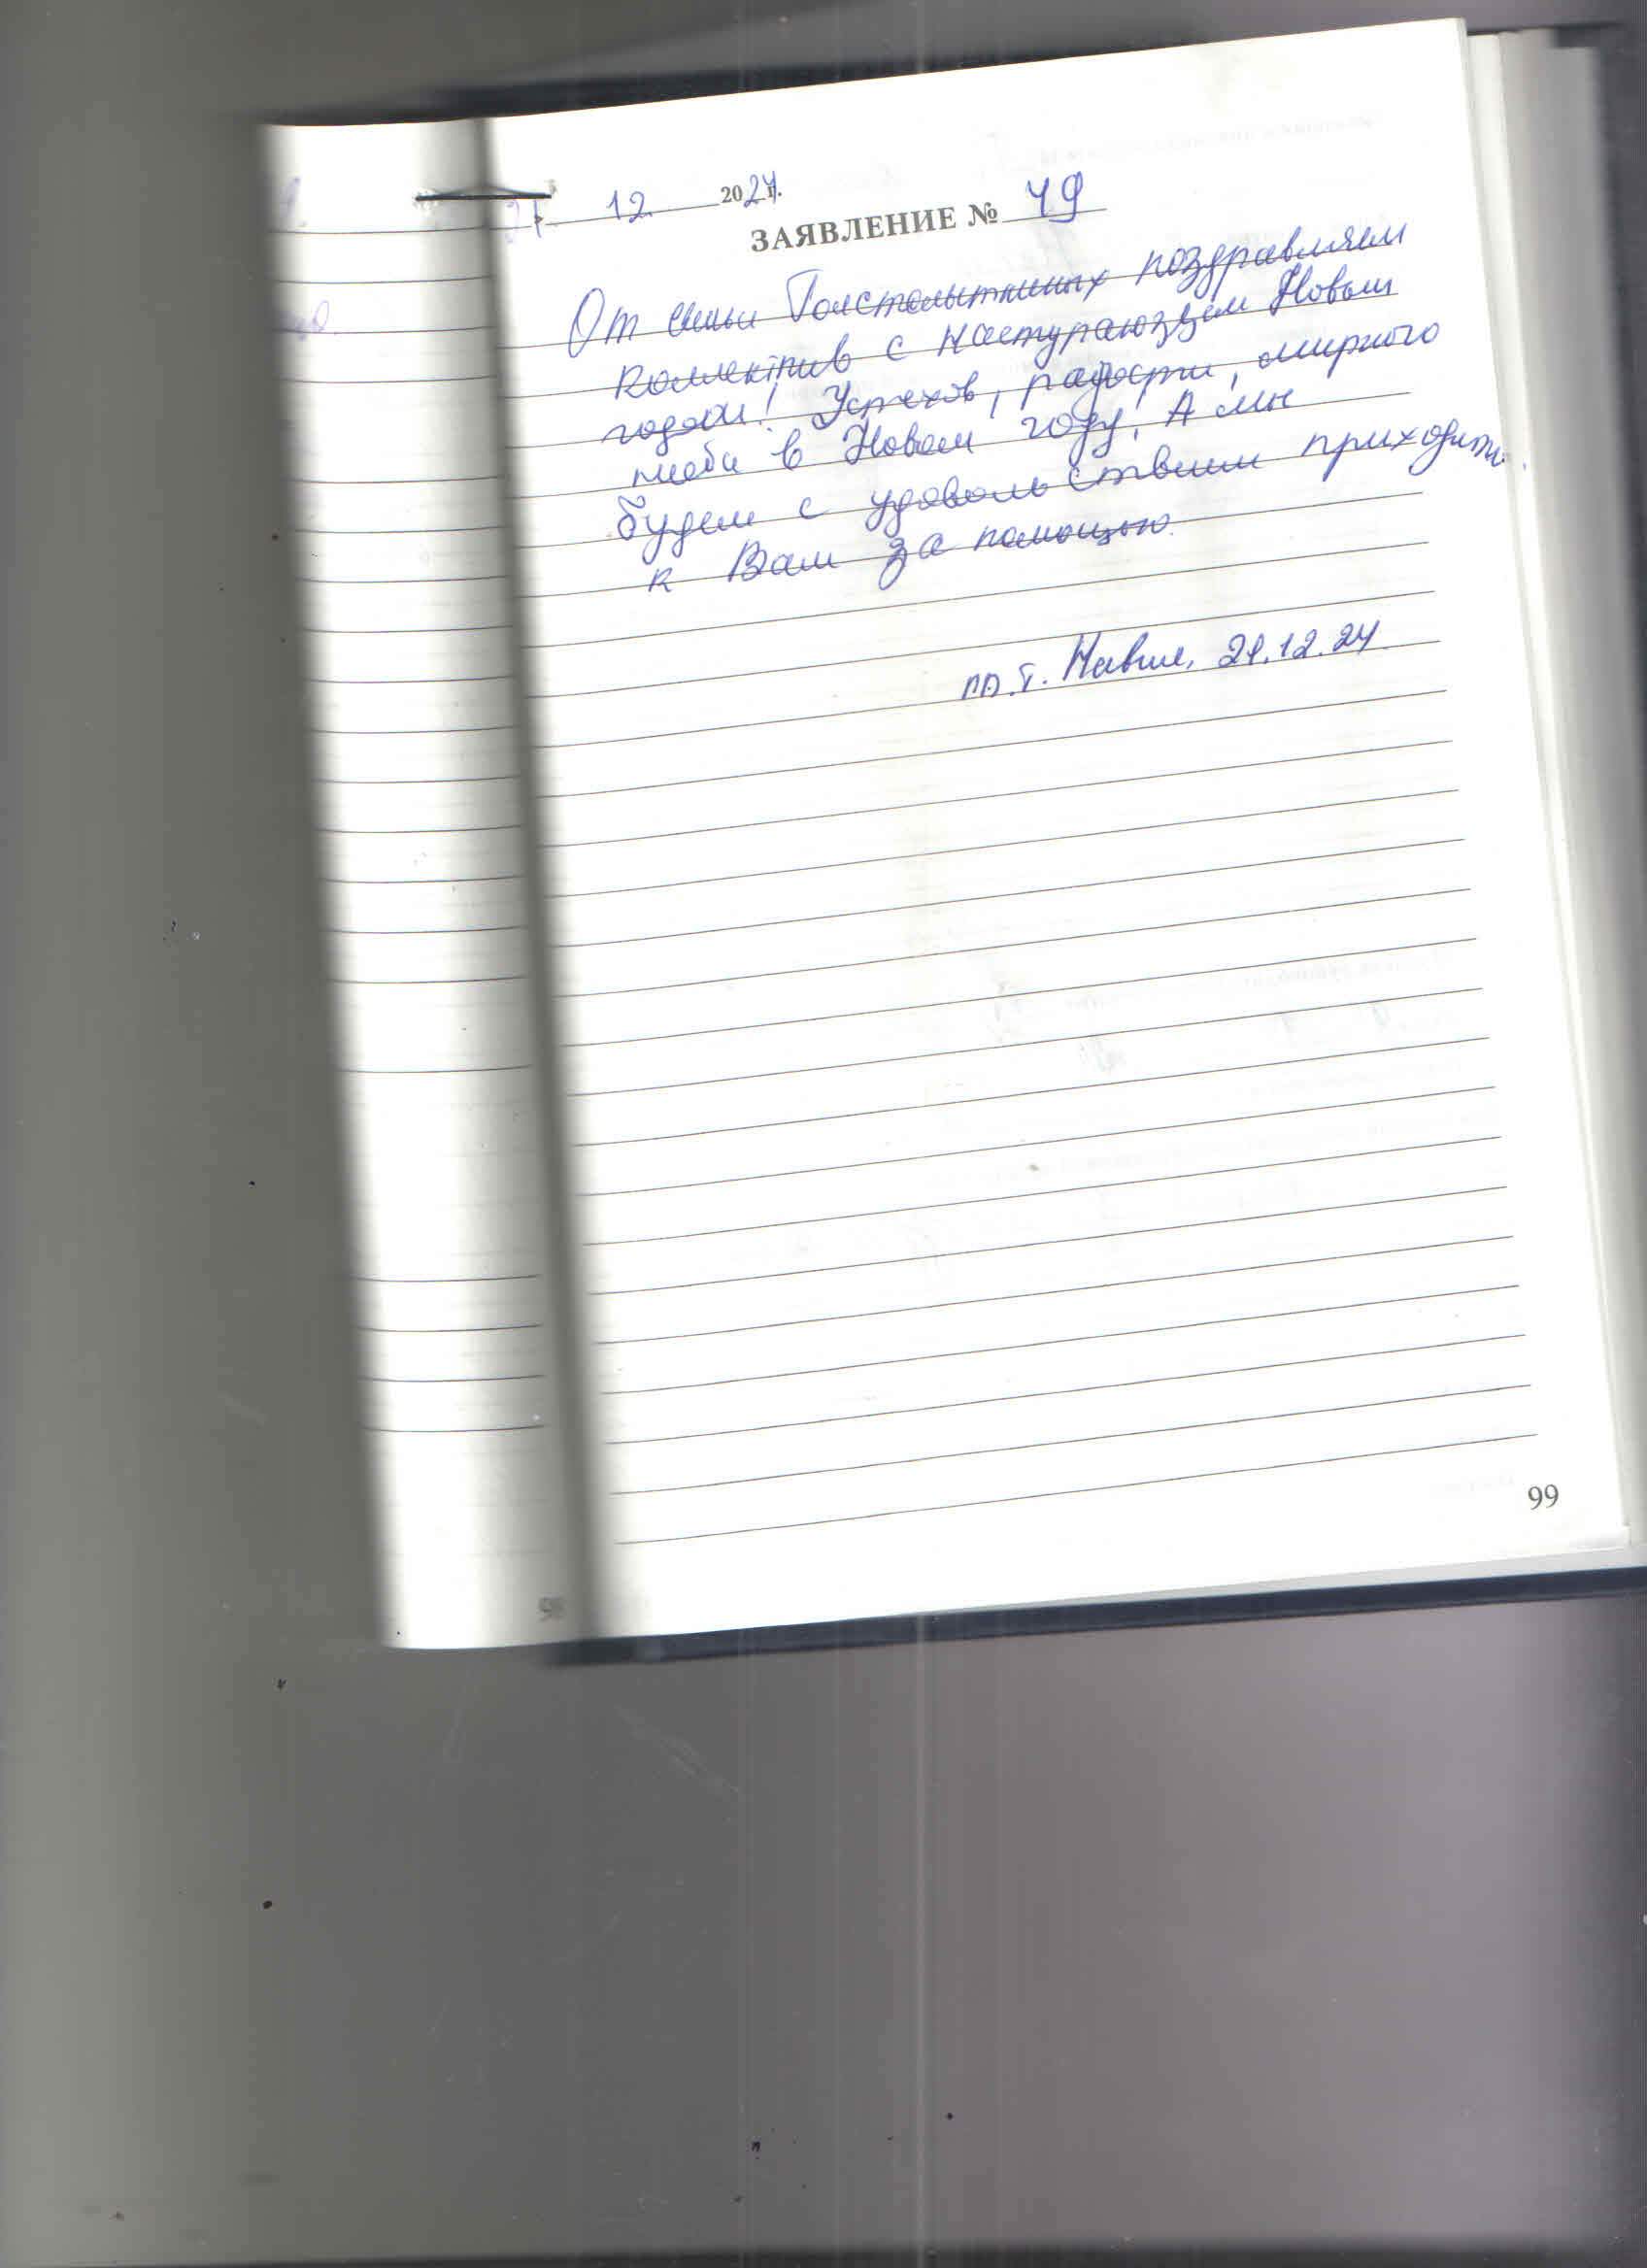 21 12. 2024г.
ЗАЯВЛЕНИЕ № 49
От семьи Толстопяткиных поздравляем
коллектив с наступающим Новым
годом! Успехов, радости, мирного
неба в Новом году! А мы
будем с удовольствием приходить
к Вам за помощью.
21.12.24
99
98